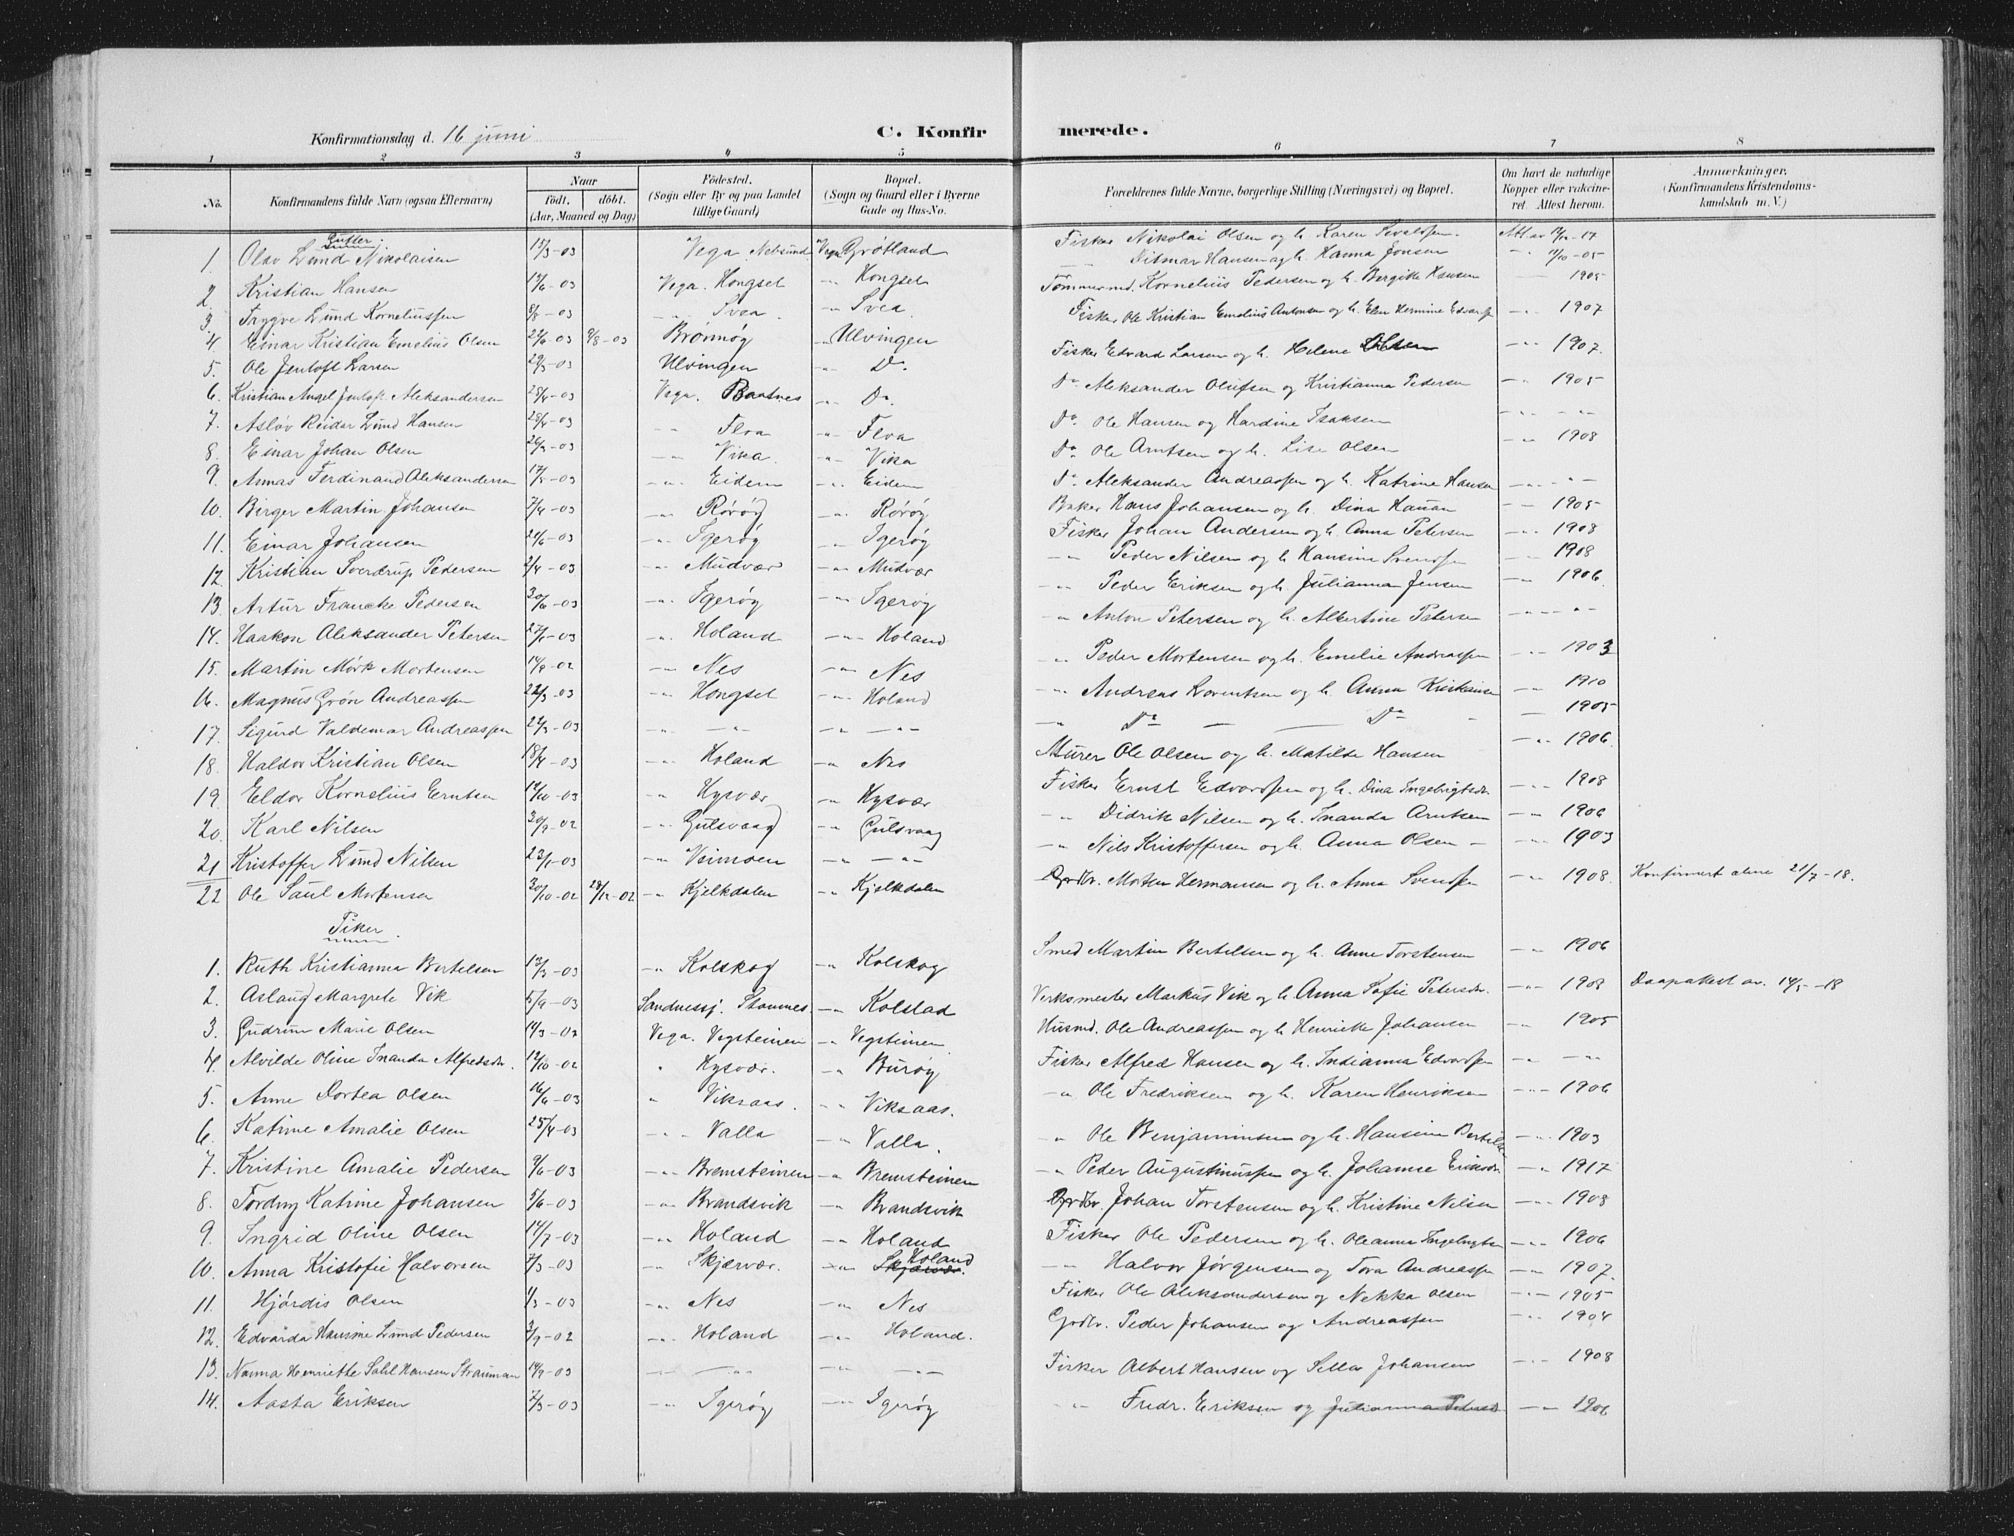 Konfirmationsdag d. 16 juni
C. Konfirmerede.
1 2 3 4 5 6 7 8
No. Konfirmandens fulde Navn (ogsaa Efternavn) Naar født. døbt. (Aar, Maaned og Dag) Fødested. (Sogn eller By og paa Landet tillige Gaard) Bopæl. (Sogn og Gaard eller i Byerne Gade og Hus-No. Forældrenes fulde Navne, borgerlige Stilling (Næringsvei) og Bopæl. Om havt de naturlige Kopper eller vakcineret. Attest herom. Anmærkninger. (Konfirmandens Kristendomskundskab m. V.)
Gutter
1. Olav Lund Nikolaisen 15/3-03 Vega Nebsund Vega Grötland Fisker Nikolai Olsen og h. Karen
2. Kristian Hansen 17/6-03 Vega. Hongset -"- Hongset -"- Ditmar Hansen og h. Hanna Jensen -"- 11/10-05
3. Trygve Lund Korneliussen 8/8-03 -"- Svea -"- Svea. Tømmermd. Kornelius Pedersen og h. Bergitte Hansen -"- 1905
4. Einar Kristian Emelius Olsen 22/6-03 9/8-03 Brønnøy -"- Ulvingen Fisker Ole Kristian Emelius Antonsen og h. Elen Hermine -"- 1907
5. Ole Jentoft Larsen 29/3-03 Ulvingen -"- Do. Fisker Edvard Larsen og h. Helene Olsen -"- 1907.
6. Kristian Angel Jentoft Aleksandersen 28/4-03 Vega. Baatnes -"- Do. Do. Aleksander Olufsen og Kristianna Pedersen -"- 1905
7. Asløv Reidar Lund Hansen 28/4-03 -"- Floa -"- Floa Do. Ole Hansen og Hardine Isaksen -"- -"-
8. Einar Johan Olsen 26/3-03 -"- Vika. -"- Vika Do. Ole Arntsen og h. Lise Olsen -"- 1908
9. Annas Ferdinand Aleksandersen 17/5-03 -"- Eidem -"- Eidem Do. Aleksander Andreassen og h. Katrine Hansen -"- -"-
10. Birger Martin Johansen 7/4-03 -"- Rørøy -"- Rørøy Baker Hans Johansen og h. Dina Hauan -"- 1905
11. Einar Johansen 21/6-03 -"- Igerøy -"- Igerøy Fisker Johan Andersen og h. Anna Petersen -"- 1903
12. Kristian Sverdrup Pedersen 2/4-03 -"- Mudvær -"- Mudvær -"- Peder Nilsen og h. Hansine Svendsen -"- 1908
13. Artur Francke Pedersen 30/6-03 -"- Igerøy -"- Igerøy -"- Peder Eriksen og h. Julianna Jensen -"- 1906.
14. Haakon Aleksander Petersen -03 -"- Holand -"- Holand -"- Anton Petersen og h. Albertine Petersen -"- -"-
15. Martin Mørk Mortensen 14/9-02 -"- Nes -"- Nes -"- Peder Mortensen og h. Emelie Andreassen -"- 1903
16. Magnus Grøn Andreassen 22/3-03 -"- Hongset -"- Holand -"- Andreas Lorentsen og h. Anna Kristiansen -"- 1910
17. Sigurd Valdemar Andreassen 22/3-03 -"- -"- -"- -"- -"- Do. Do. -"- 1905
18. Haldor Kristian Olsen 18/4-03 -"- Holand -"- Nes Murer Ole Olsen og h. Matilde Hansen -"- 1906.
19. Eldor Kornelius Erntsen 12/10-03 -"- Hysvær -"- Hysvær Fisker Ernst Edvardsen og h. Dina Ingebrigtsdr. -"- 1908
20. Karl Nilsen 30/9-02 -"- Gulsvaag -"- Gulsvaag -"- Didrik Nilsen og h. Inanda Arntsen -"- 1906
21 Kristoffer Lund Nilsen 23/1-03 -"- Veimoen -"- -"- -"- Nils Kristoffersen og h. Anna Olsen -"- 1903
22 Ole Paul Mortensen 30/10-02 28/12-02 -"- Kjelkdalen -"- Kjelkdalen Grdbr. Morten Hermansen og h. Anna Svendsen -"- 1908. Konfirmert alene 21/7-18.
Piker.
1. Ruth Kristianna Bertelsen 12/3-03 -"- Kolskog -"- Kolskog Smed Martin Bertelsen og h. Anne Torstensen -"- 1906
2. Aslaug Margrete Vik 5/9-03 Sandnessj. Stamnes. -"- Kolstad Verksmester Markus Vik og h. Anna Sofie Petersdr. -"- 1908 Daapattest av. 14/5-18
3. Gudrun Marie Olsen 14/3-03 Vega. Vegsteinen -"- Vegsteinen Husmd. Ole Andreassen og h. Henrikke Johansen -"- 1905
4. Alvilde Oline Inanda Alfredsdr. 12/10-02 " Hysvær. -"- Burøy Fisker Alfred Hansen og h. Indianna Edvardsen -"- -"-
5. Anne Dortea Olsen 16/6-03 " Viksaas. -"- Viksaas. -"- Ole Fredriksen og h. Karen Henriksen -"- 1906
6. Katrine Amalie Olsen 25/4-03 -"- Valla -"- Valla. -"- Ole Benjaminsen og h. Hansine Bertelsen -"- 1903
7. Kristine Amalie Pedersen 9/6-03 -"- Bremsteinen -"- Bremsteinen -"- Peder Augustinussen og h. Johanne Eriksdr. -"- 1917
8. Tordny Katrine Johansen 5/6-03 -"- Brandsvik -"- Brandsvik Grdbr. Johan Torstensen og h. Kristine Nilsen -"- 1903
9. Ingrid Oline Olsen 14/7-03 -"- Holand -"- Holand Fisker Ole Pedersen og h. Oleanna Ingebrigtsen -"- 1906
10. Anna Kristofie Halvorsen 7/3-03 -"- Skjærvær. -"- Holand Skjærvær. -"- Halvor Jørgensen og Tora Andreassen -"- 1907.
11. Hjørdis Olsen 1/3-03 -"- Nes -"- Nes Fisker Ole Aleksandersen og Nekka Olsen -"- 1905
12. Edvarda Hansine Lund Pedersen 3/9-02 -"- Holand -"- Holand. Grdbr. Peder Johansen og Andreassen -"- 1904
13. Nanna Henriette Sahl Hansen Strauman 14/9-03 -"- -"- -"- -"- Fisker Albert Hansen og Sella Johansen -"- 1908
14. Aasta Eriksen 7/3-03 -"- Igerøy -"- Igerøy -"- Fredr. Eriksen og Julianna -"- 1906